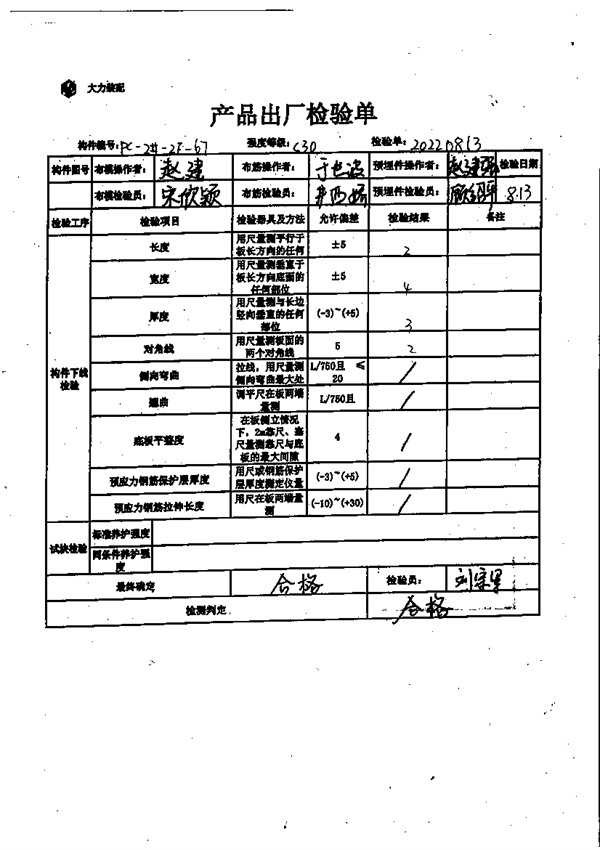 大力装配
产品出厂检验单
构件编号: PC-2#-2F-67 强度等级: C30 检验单: 20220813
构件图号 布模操作者: 赵建 布筋操作者: 预埋件操作者: 赵建强 检验日期
布模检验员: 宋欣颖 布筋检验员: 预埋件检验员: 8.13
检验工序 检验项目 检验器具及方法 允许偏差 检验结果 备注
构件下线检验
长度 用尺量测平行于板长方向的任何 ±5 2
宽度 用尺量测垂直于板长方向底面的任何部位 ±5 4
厚度 用尺量测与长边竖向垂直的任何部位 (-3)~(+5) 3
对角线 用尺量测板面的两个对角线 5 2
侧向弯曲 拉线,用尺量测侧向弯曲最大处 L/750且 ≤20 /
翘曲 调平尺在板两端量测 L/750且 /
底板平整度 在板侧立情况下,2m靠尺、塞尺量测靠尺与底板的最大间隙 4 /
预应力钢筋保护层厚度 用尺或钢筋保护层厚度测定仪量 (-3)~(+5) /
预应力钢筋拉伸长度 用尺在板两端量测 (-10)~(+30) /
试块检验 标准养护强度
同条件养护强度
最终确定 合格 检验员:
检测判定 合格